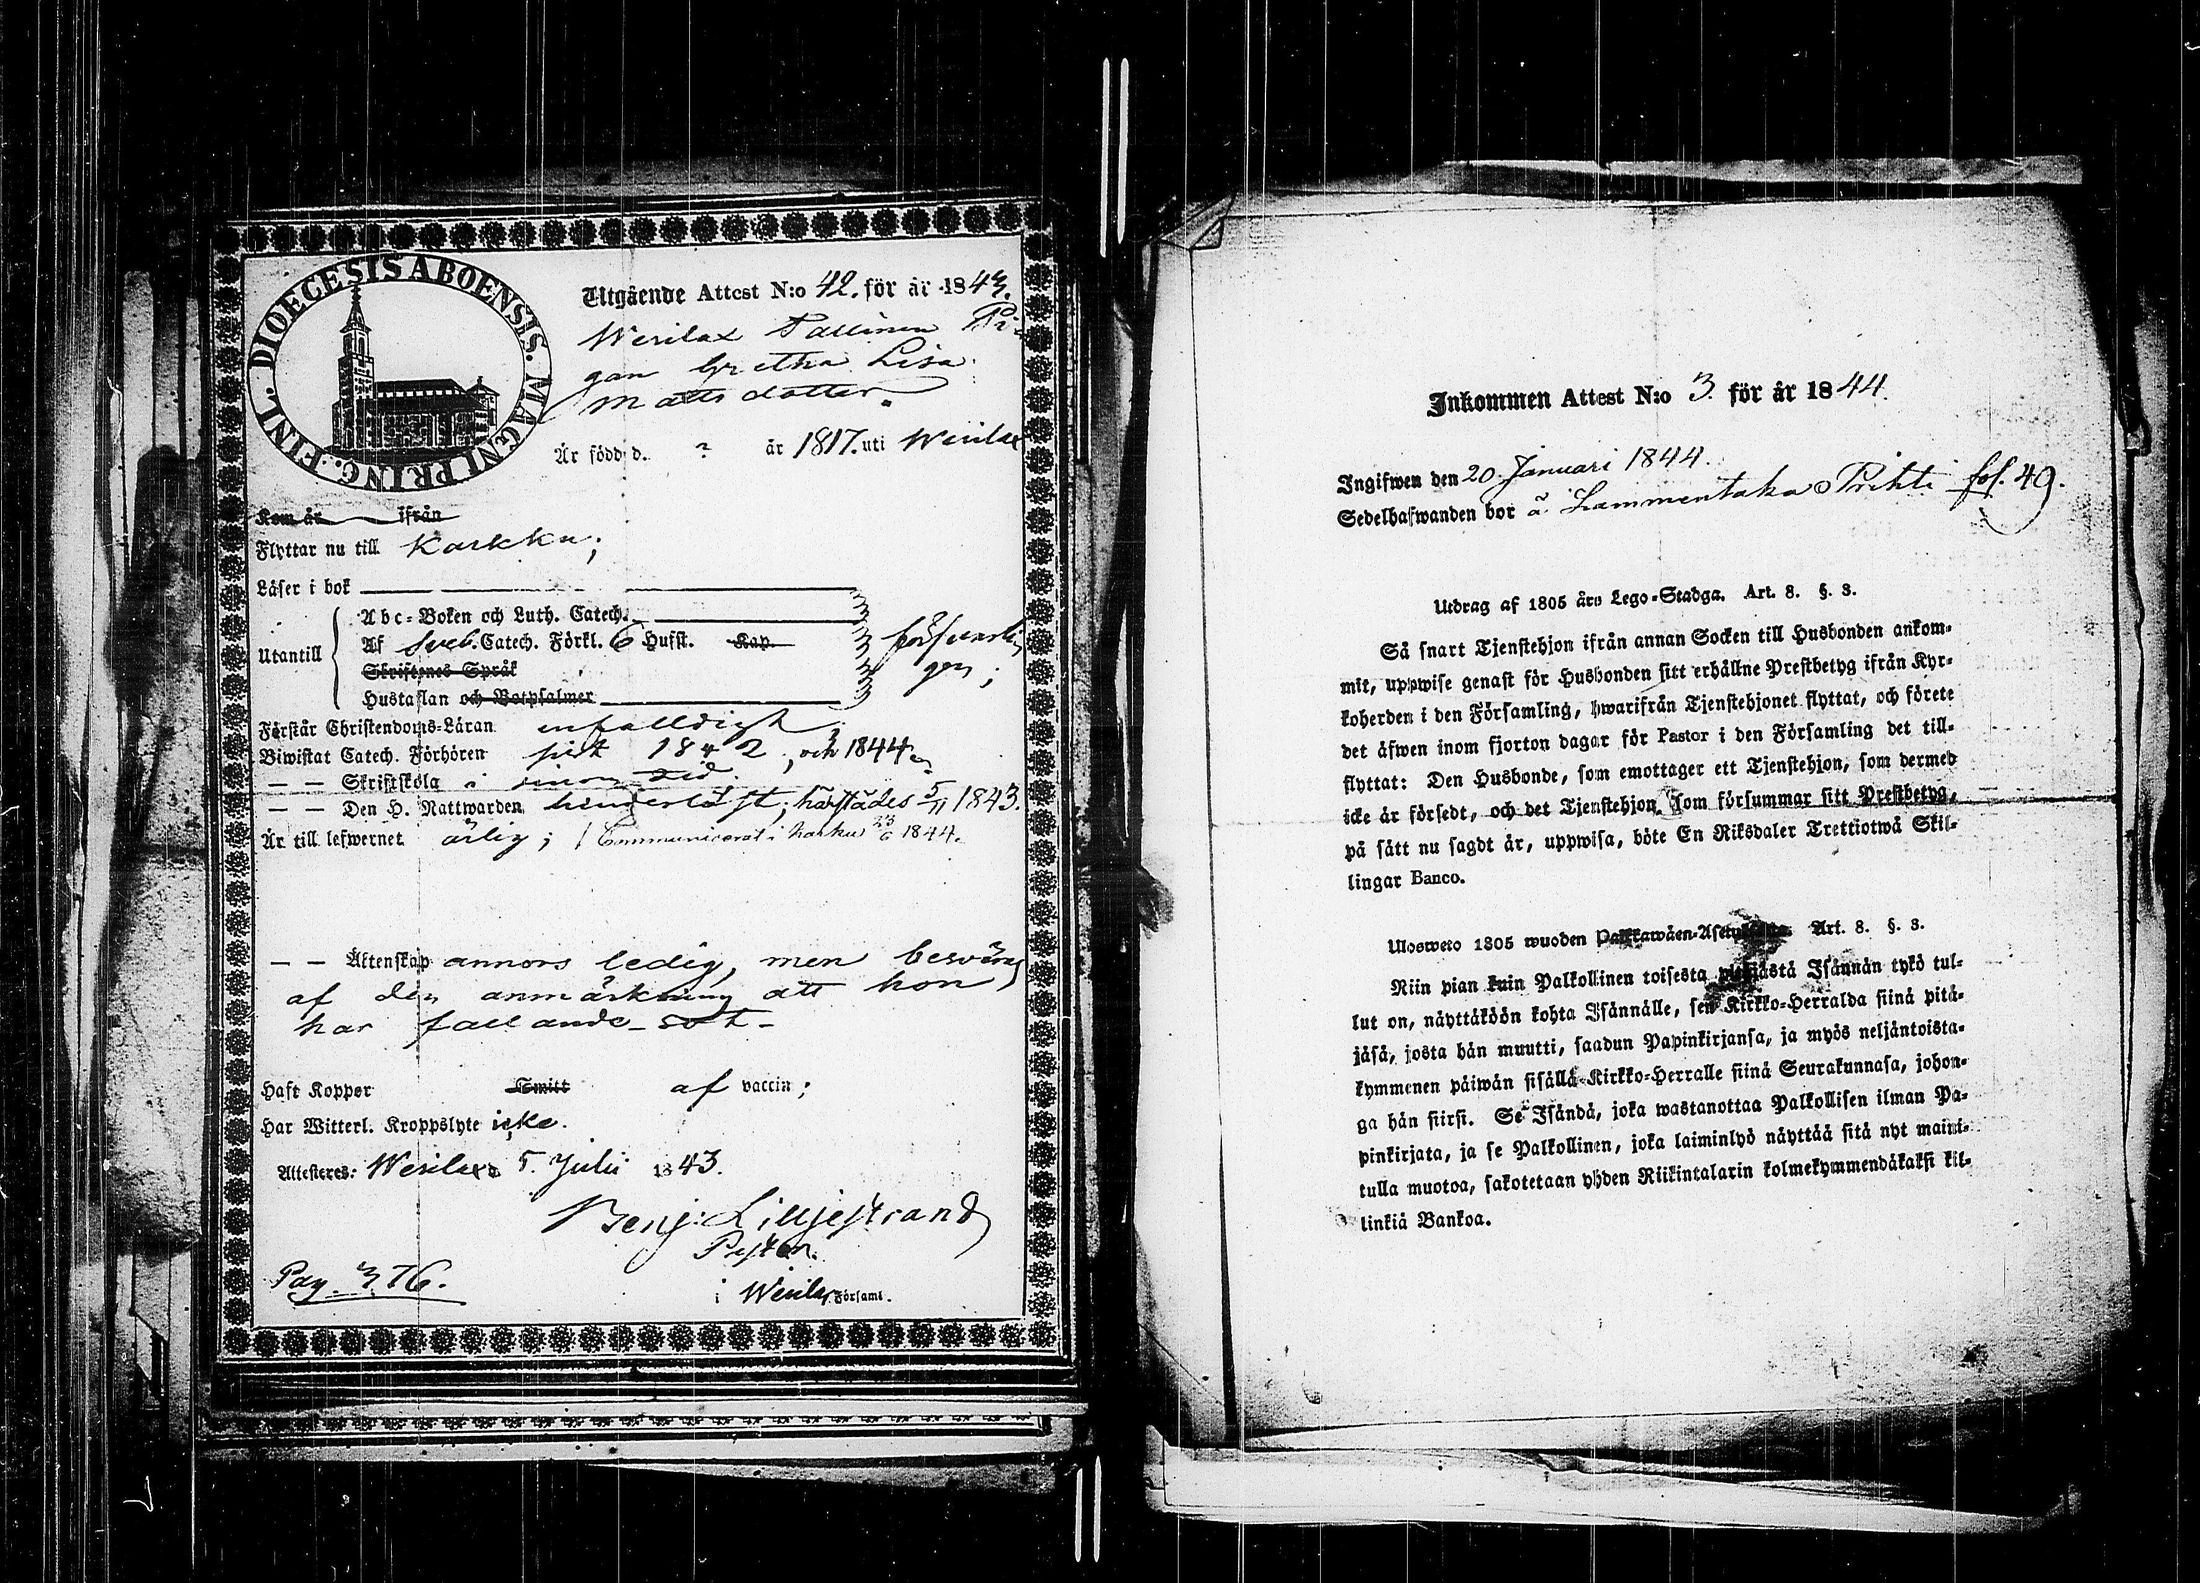 DIOECESIS ABOENSIS. MAGNI PRINC. FINL.
Utgående Attest N:o 42. för år 1843.
Wesilax Pi-
gan Gretha Lisa
Matts dotter.
Är född d. ? år 1817. uti Wesilax
Kom år ifrån
Flyttar nu till Karkku;
Läser i bok
Abc-Boken och Luth. Catech.
Utantill Af Sveb. Catech. Förkl. 6 Hufst. Kap.
Skriftenes Språk
Hustaflan och Botpsalmer
försvarli
gen;
Förstår Christendoms-Läran enfalldigt;
Biwistat Catech. Förhören sist 1842, och 1844
— — Skriftskola
— — Den H. Nattwarden hinderlöst, härstädes 5/11 1843.
Är till lefwernet ärlig; Communicerat i Karku 23/6 1844.
— — Äktenskap annors ledig, men besväras
af den anmärkning att hon
har fallande-sot-
Haft Koppor Smitt af vaccin;
Har Witterl. Kroppslyte icke.
Attesteras: Wesilax d. 5. Julii 1843.
Benj: Lilljestrand
Pastor.
Pag. 376. i Wesilax Församl.
Inkommen Attest N:o 3. för år 1844.
Ingifwen den 20. Januari 1844.
Sedelhafwanden bor å Lammentaka Prihti fol. 49.
Utdrag af 1805 års Lego-Stadga. Art. 8. §. 3.
Så snart Tjenstehjon ifrån annan Socken till Husbonden ankom-
mit, uppwise genast för Husbonden sitt erhållne Prestbetyg ifrån Kyr-
koherden i den Församling, hwarifrån Tjenstehjonet flyttat, och förete
det äfwen inom fjorton dagar för Pastor i den Församling det till-
flyttat: Den Husbonde, som emottager ett Tjenstehjon, som dermed
icke är försedt, och det Tjenstehjon som försummar sitt Prestbetyg,
på sätt nu sagdt är, uppwisa, böte En Riksdaler Trettiotwå Skil-
lingar Banco.
Ulosweto 1805 wuoden Palkkawäen-Asetuksesta. Art. 8. §. 3.
Niin pian kuin Palkollinen toisesta pitäjästä Isännän tykö tul-
lut on, näyttäköön kohta Isännälle, sen Kirkko-Herralda siinä pitä-
jäsä, josta hän muutti, saadun Papinkirjansa, ja myös neljäntoista-
kymmenen päiwän sisällä Kirkko-Herralle siinä Seurakunnasa, johon-
ga hän siirsi. Se Isändä, joka wastanottaa Palkollisen ilman Pa-
pinkirjata, ja se Palkollinen, joka laiminlyö näyttää sitä nyt maini-
tulla muotoa, sakotetaan yhden Riikintalarin kolmekymmendäkaksi kil-
linkiä Bankoa.